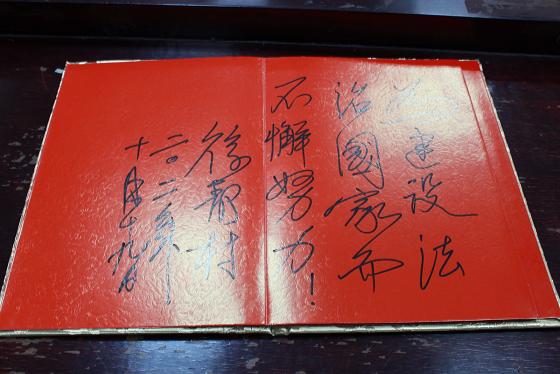 为建设法
治國家而
不懈努力！
徐静村
二〇一二年
十月十九日